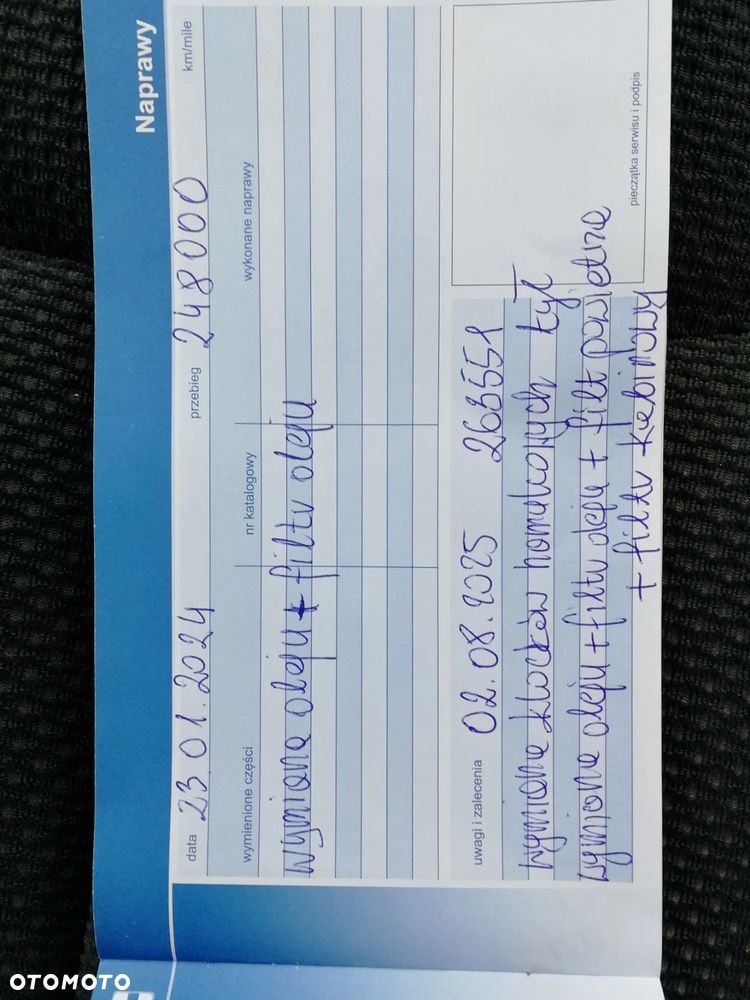 Naprawy
data 23.01.2024 przebieg 248000 km/mile
wymienione części nr katalogowy wykonane naprawy
wymiana oleju + filtv oleju
uwagi i zalecenia 02.08.2025 263551
wymiana klocków hamulcowych tył
wymiana oleju + filtv oleju + filt powietrza
+ filtv kabinowy
pieczątka serwisu i podpis
OTOMOTO